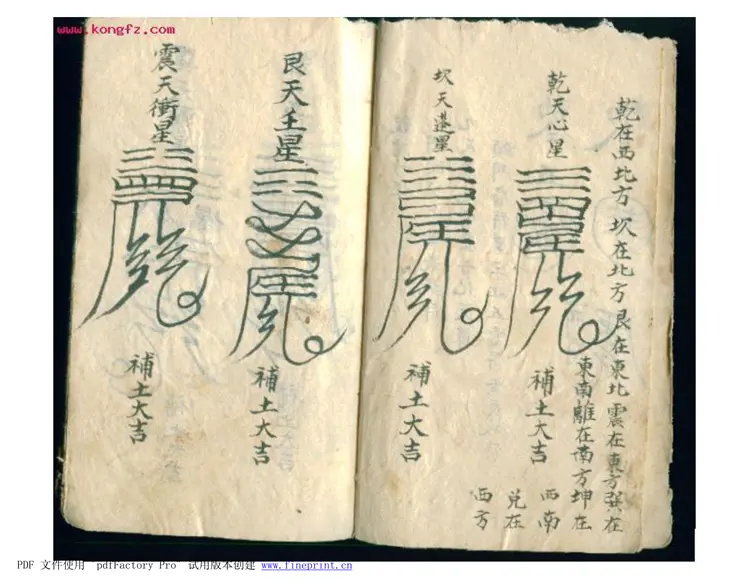 www.kongfz.com
乾在西北方 坎在北方 艮在東北 震在東方巽在
東南離在南方坤在
西南
兌在
西方
乾天心星
補土大吉
坎天蓬星
補土大吉
艮天壬星
補土大吉
震天衝星
補土大吉
PDF 文件使用 pdfFactory Pro 试用版本创建 www.fineprint.cn